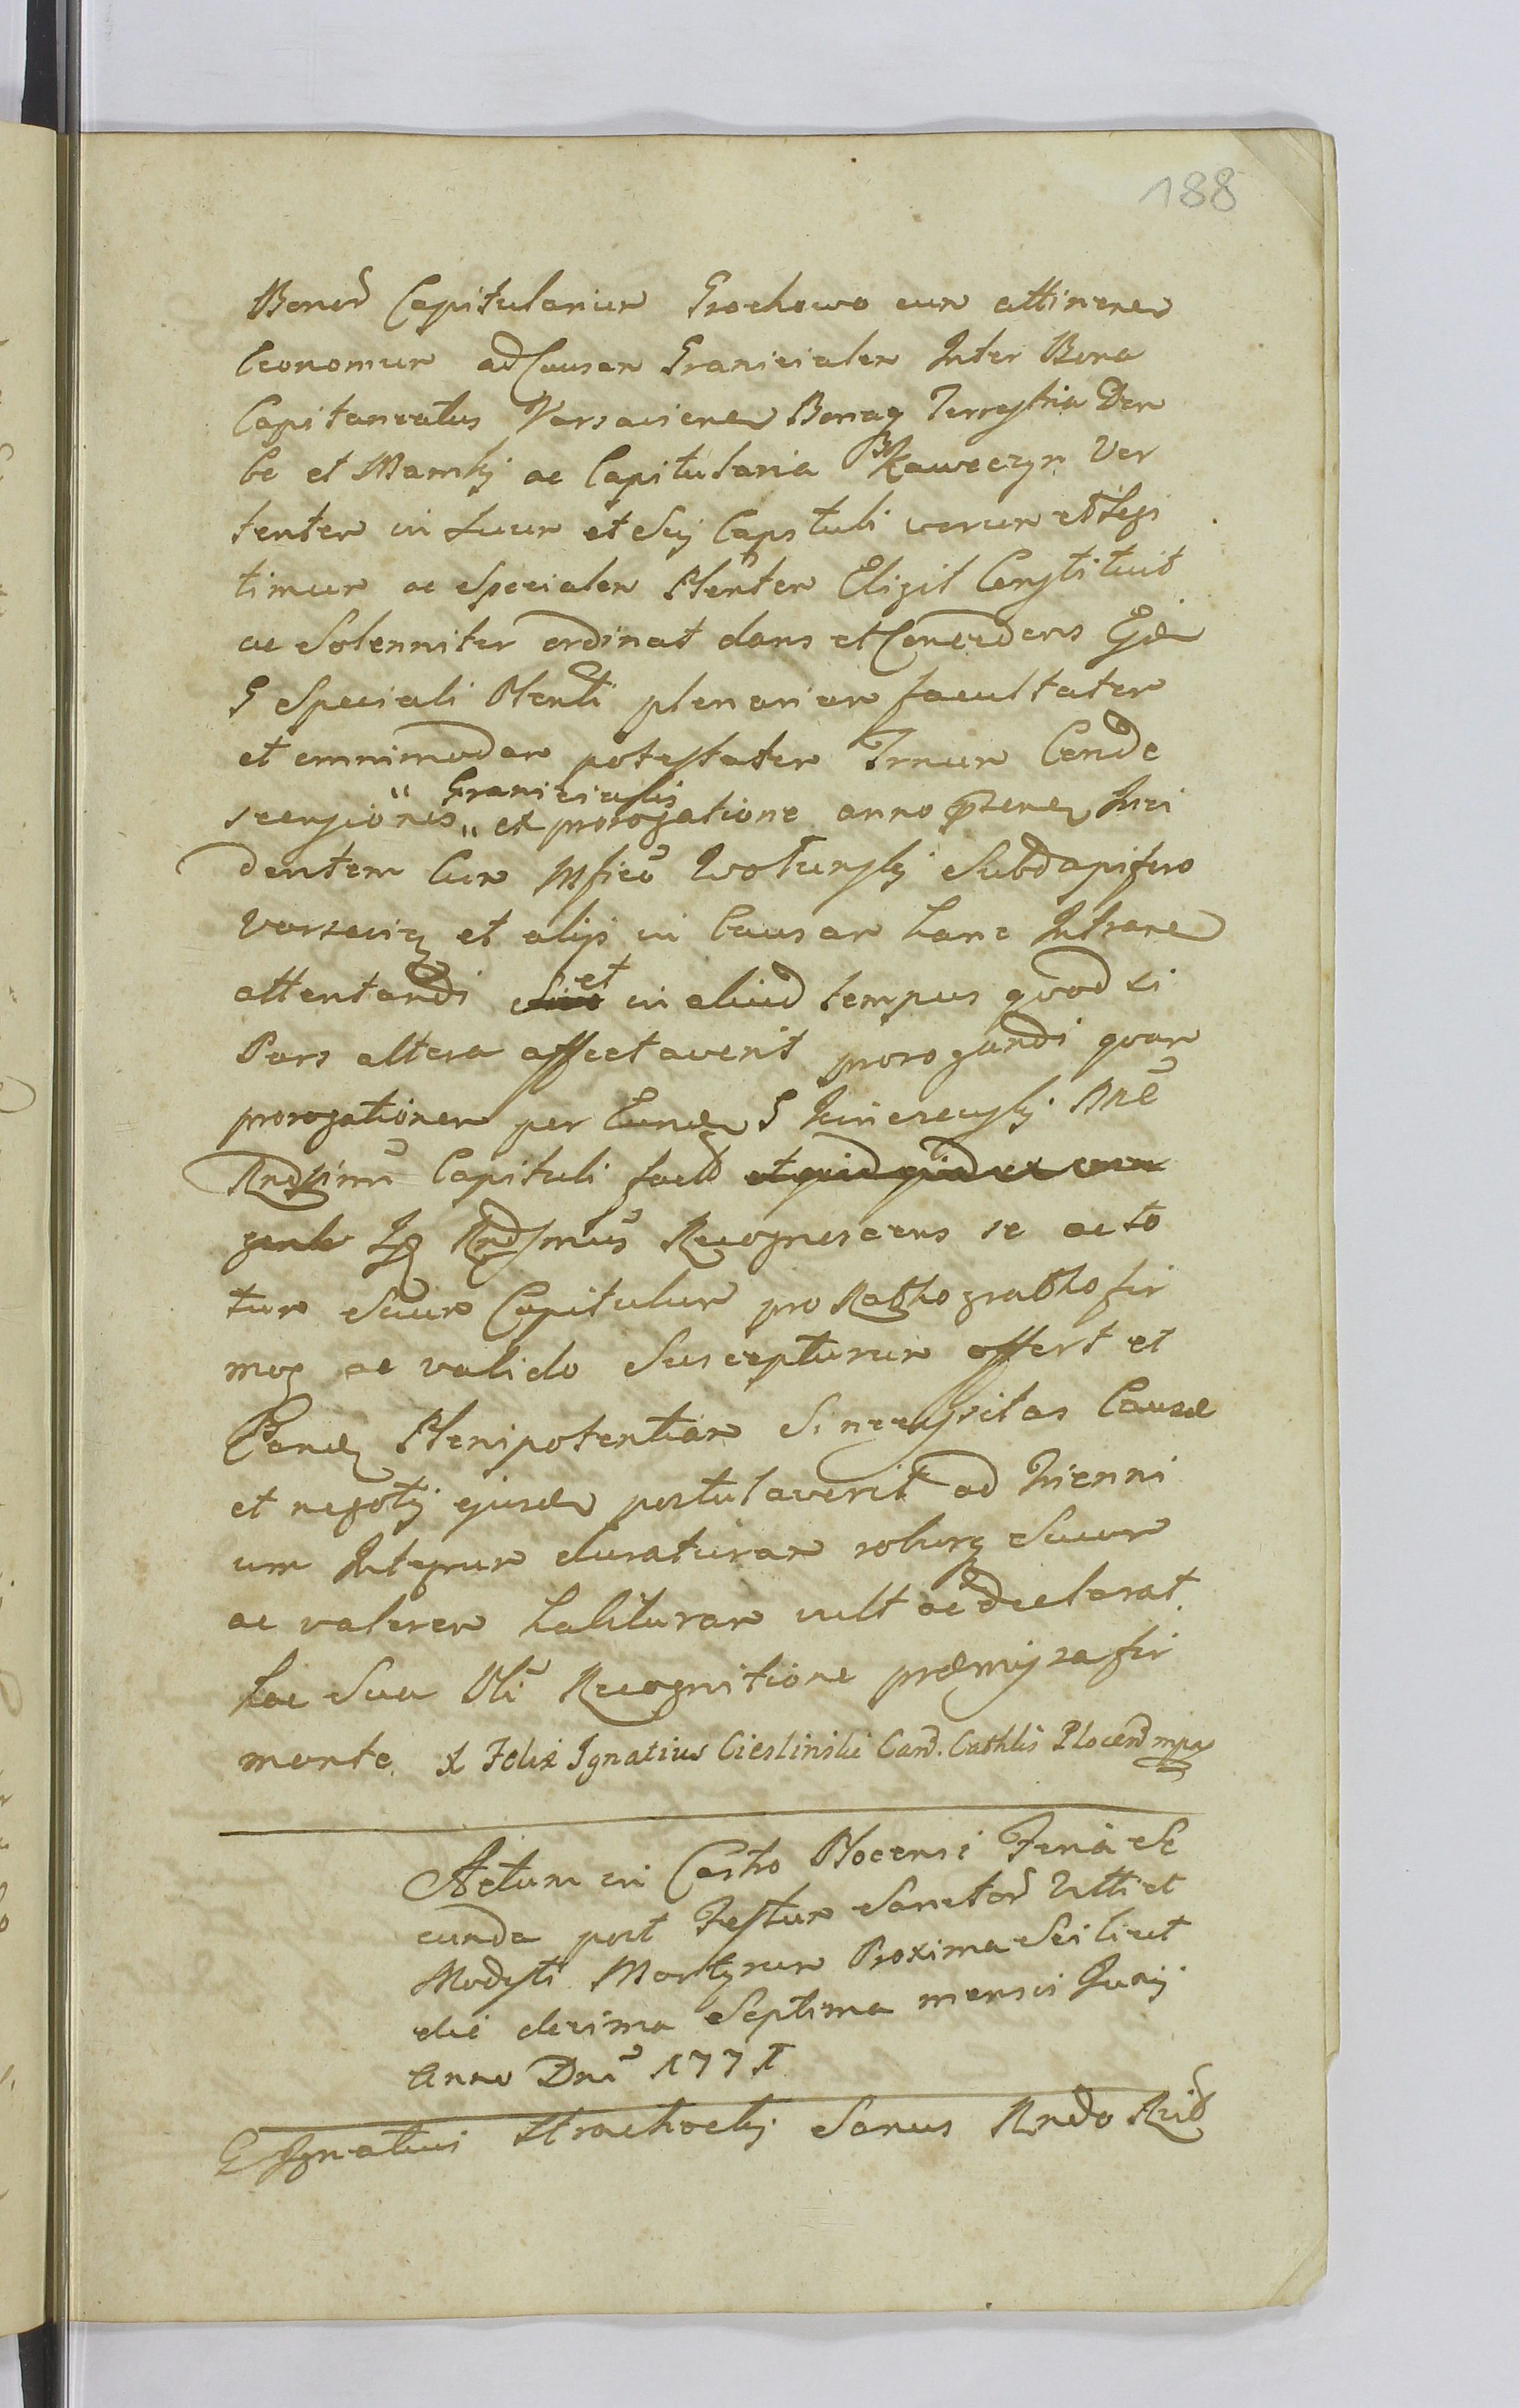 188
Bonor Capitularium Grochowo cum attinen
Economum ad Causam Granicialem Inter Bona
Capitaneatus Varsavien Bonaq Terrestria Dem
be et Mamki ac Capitularia Kawęczyn Ver
tentem in Suum et Sui Capituli verum et Legi
timum ac Specialem Plentem Eligit Constituit
ac Solenniter ordinat dans et Concedens Ejd
G Speciali Plenti plenariam facultatem
et omnimodam potestatem Trnum Conde
scensionis „ Granicialis
„ et prorogatione anno pzene Inci
dentem Cum Mfico Subdapifero
Varsavi et alijs in Causam hanc Intrane
attentandi et in aliud tempus quod si
Pars altera affectaverit prorogandi quam
prorogationem per Eund G nrē
Rndssimi Capituli fact
Iģ Rndsmus Recognoscens se ac to
tum Suum Capitulum pro Ratho gratho fir
moq ac valido Suscepturum offert et
Eand Plenipotentiam Si necessitas Causæ
et negotij ejusd postulaverit ad Trienni
um Integrum duraturam roburq Suum
ac valorem habituram vult ac declarat.
hac Sua Recognitione præmissa fir
mante. X Felix Ignatius Cieslinski Can. Cathlis Plocen mpa
Actum in Castro Plocensi Feria Se
cunda post Festum Sanctor Viti et
Modesti Martyrum Proxima Scilicet
die decima Septima mensis Junij
Anno Dni 1771
G Ignatius Strachocki Sanus Rndo Rció